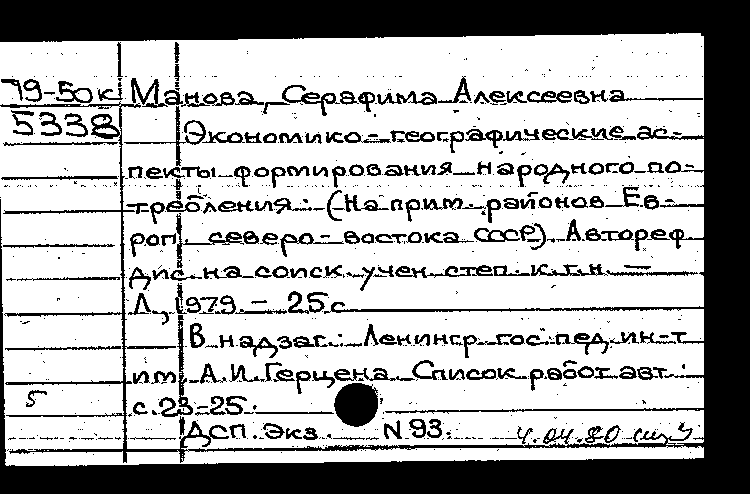 79-50к Манова, Серафима Алексеевна
5338 Экономико-географические ас-
пекты формирования народного по-
требления: (На прим. районов Ев-
роп. северо-востока СССР). Автореф
дис. на соиск. учен. степ. к.г.н. —
Л., 1979. - 25 с
В надзаг.: Ленингр. гос. пед. ин-т
им. А.И. Герцена. Список работ авт.:
5 с. 23-25.
ДСП. Экз. N 93. 4.04.80